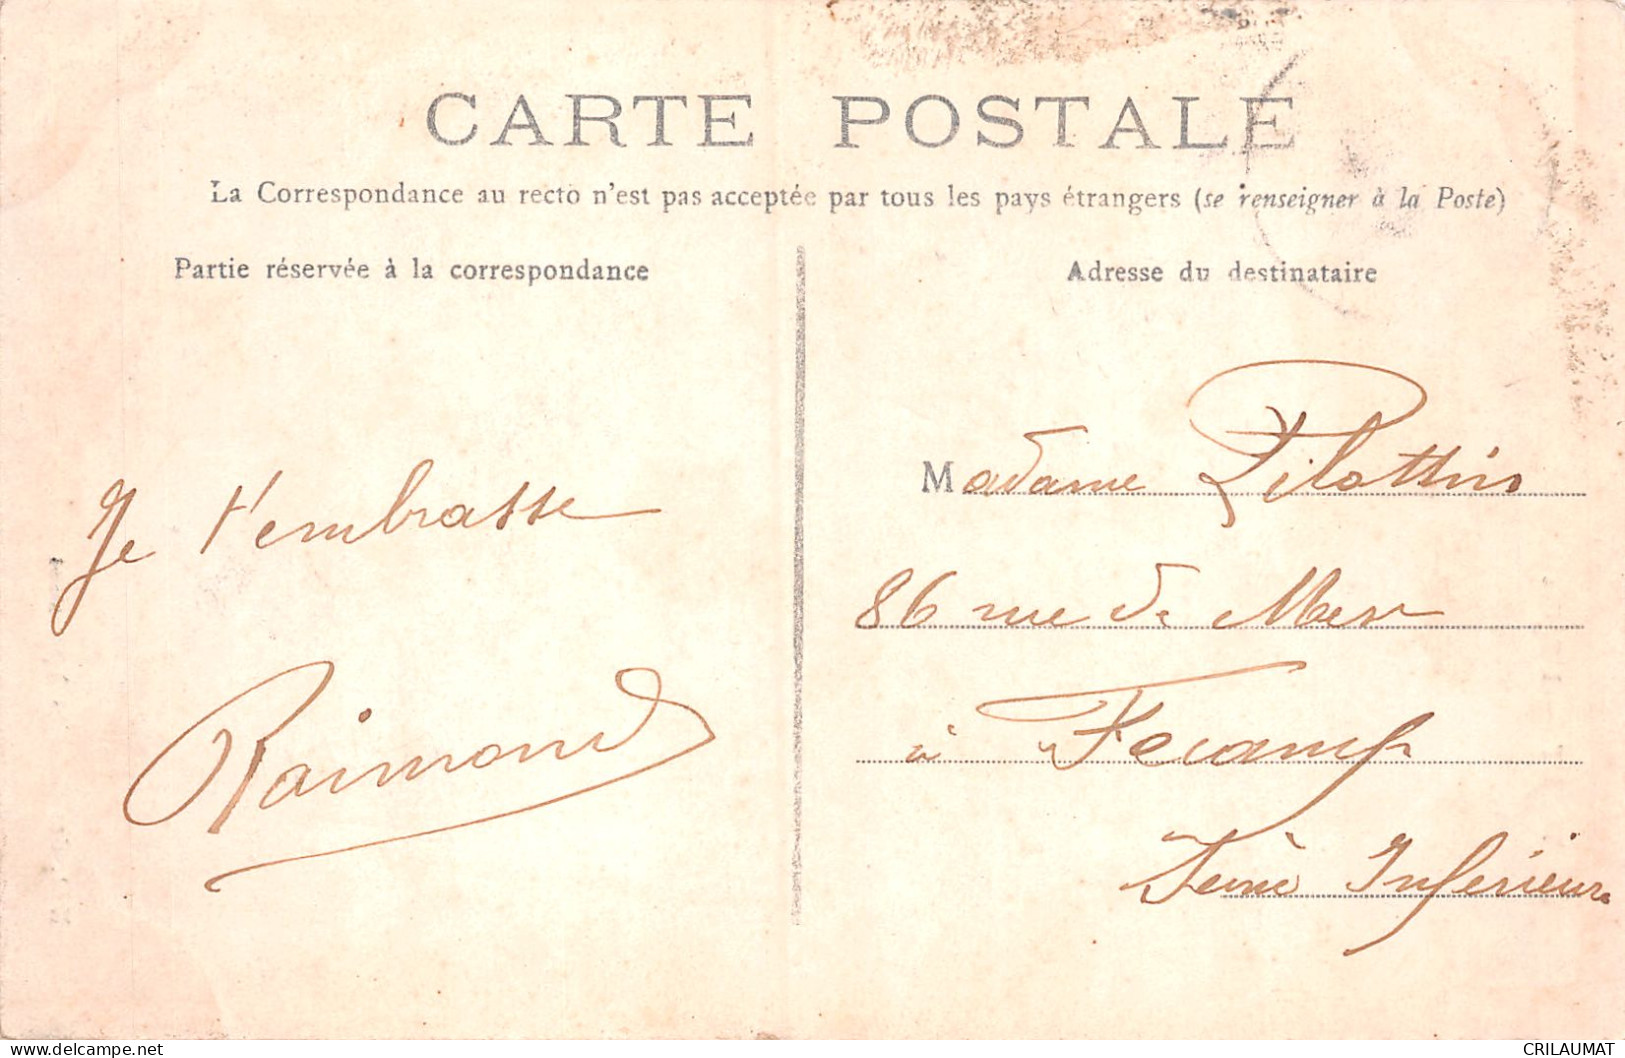 CARTE POSTALE
La Correspondance au recto n'est pas acceptée par tous les pays étrangers (se renseigner à la Poste)
Partie réservée à la correspondance
Je t'embrasse
Raimond
Adresse du destinataire
Madame
86 rue de Mer
à Fecamp
Seine Inférieure
www.delcampe.net
CRILAUMAT